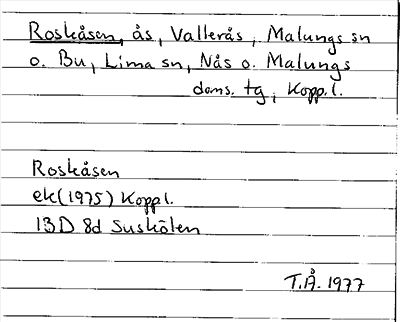 Roskåsen, ås, Vallerås, Malungs sn
o. Bu, Lima sn, Nås o. Malungs
doms. tg, Kopp.l.
Roskåsen
ek(1975) Koppl.
13D 8d Suskölen
T.Å. 1977